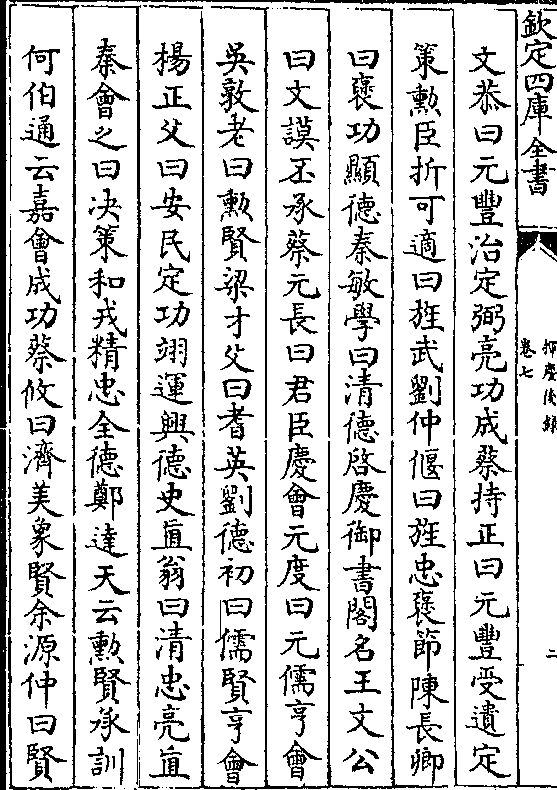 欽定四庫全書
揮麈後錄
卷七
二
文恭曰元豐治定弼亮功成蔡持正曰元豐受遺定
策勲臣折可適曰旌武劉仲偃曰旌忠襃節陳長卿
曰襃功顯德秦敏學曰清德啓慶御書閣名王文公
曰文謨丕承蔡元長曰君臣慶會元度曰元儒亨會
吳敦老曰勲賢梁才父曰耆英劉德初曰儒賢亨會
楊正父曰安民定功翊運興德史直翁曰清忠亮直
秦會之曰决策和戎精忠全德鄭達天云勲賢承訓
何伯通云嘉會成功蔡攸曰濟美象賢余源仲曰賢